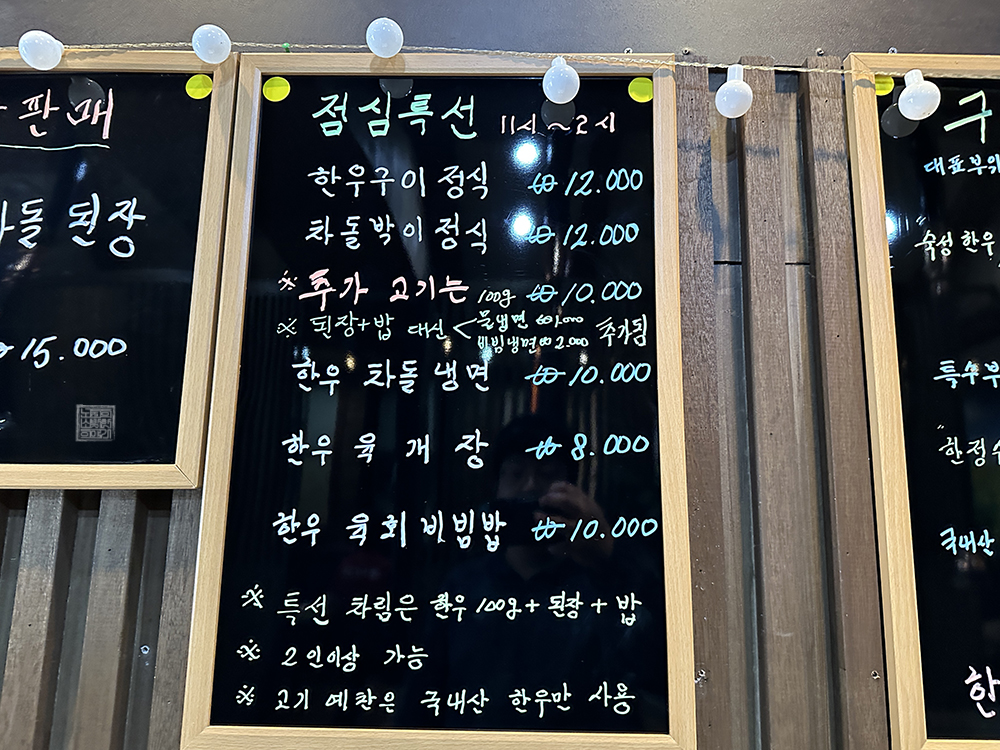 판매
차돌 된장
15.000
점심특선 11시~2시
한우구이 정식 ₩12.000
차돌박이 정식 ₩12.000
※ 추가 고기는 100g ₩10.000
※ 된장+밥 대신 < 물냉면 ₩1.000
비빔냉면 ₩2.000 추가됨
한우 차돌냉면 ₩10.000
한우 육개장 ₩8.000
한우 육회비빔밥 ₩10.000
※ 특선 차림은 한우 100g + 된장 + 밥
※ 2인이상 가능
※ 고기 예찬은 국내산 한우만 사용
구
대표부위
"숙성한우
특수부
"한정수
국내산
한